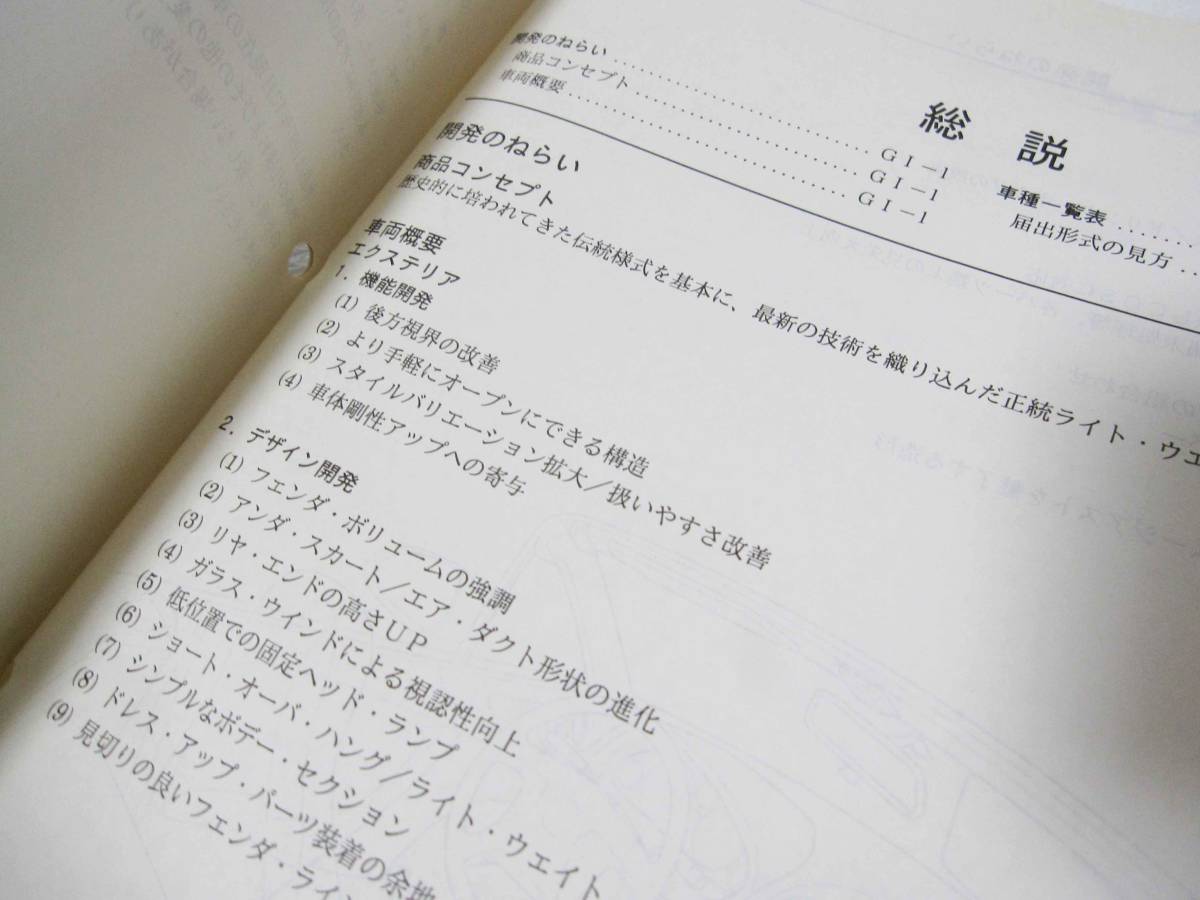 総説
開発のねらい ........ GI－1
商品コンセプト ........ GI－1
車両概要 ........ GI－1
車種一覧表 ........
届出形式の見方 ....
開発のねらい
商品コンセプト
歴史的に培われてきた伝統様式を基本に、最新の技術を織り込んだ正統ライト・ウエ
車両概要
エクステリア
1. 機能開発
(1) 後方視界の改善
(2) より手軽にオープンにできる構造
(3) スタイルバリエーション拡大／扱いやすさ改善
(4) 車体剛性アップへの寄与
2. デザイン開発
(1) フェンダ・ボリュームの強調
(2) アンダ・スカート／エア・ダクト形状の進化
(3) リヤ・エンドの高さUP
(4) ガラス・ウインドによる視認性向上
(5) 低位置での固定ヘッド・ランプ
(6) ショート・オーバ・ハング／ライト・ウエイト
(7) シンプルなボデー・セクション
(8) ドレス・アップ・パーツ装着の余地
(9) 見切りの良いフェンダ・ライン